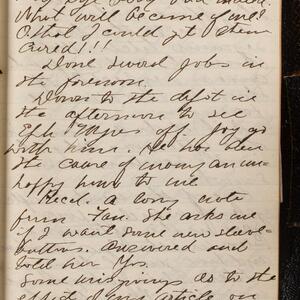 What will become of me?
O that I could get them
Cured!!!
Done several jobs in
the forenoon.
Down to the depot in
the afternoon to see
off. Joy go
with him. He has been
the cause of many an un-
happy hour to me
Recd. a long note
from Fan. She asks me
if I want some new sleeve-
buttons. Answered and
told her Yes.
Some misgivings as to the
effect of my article on